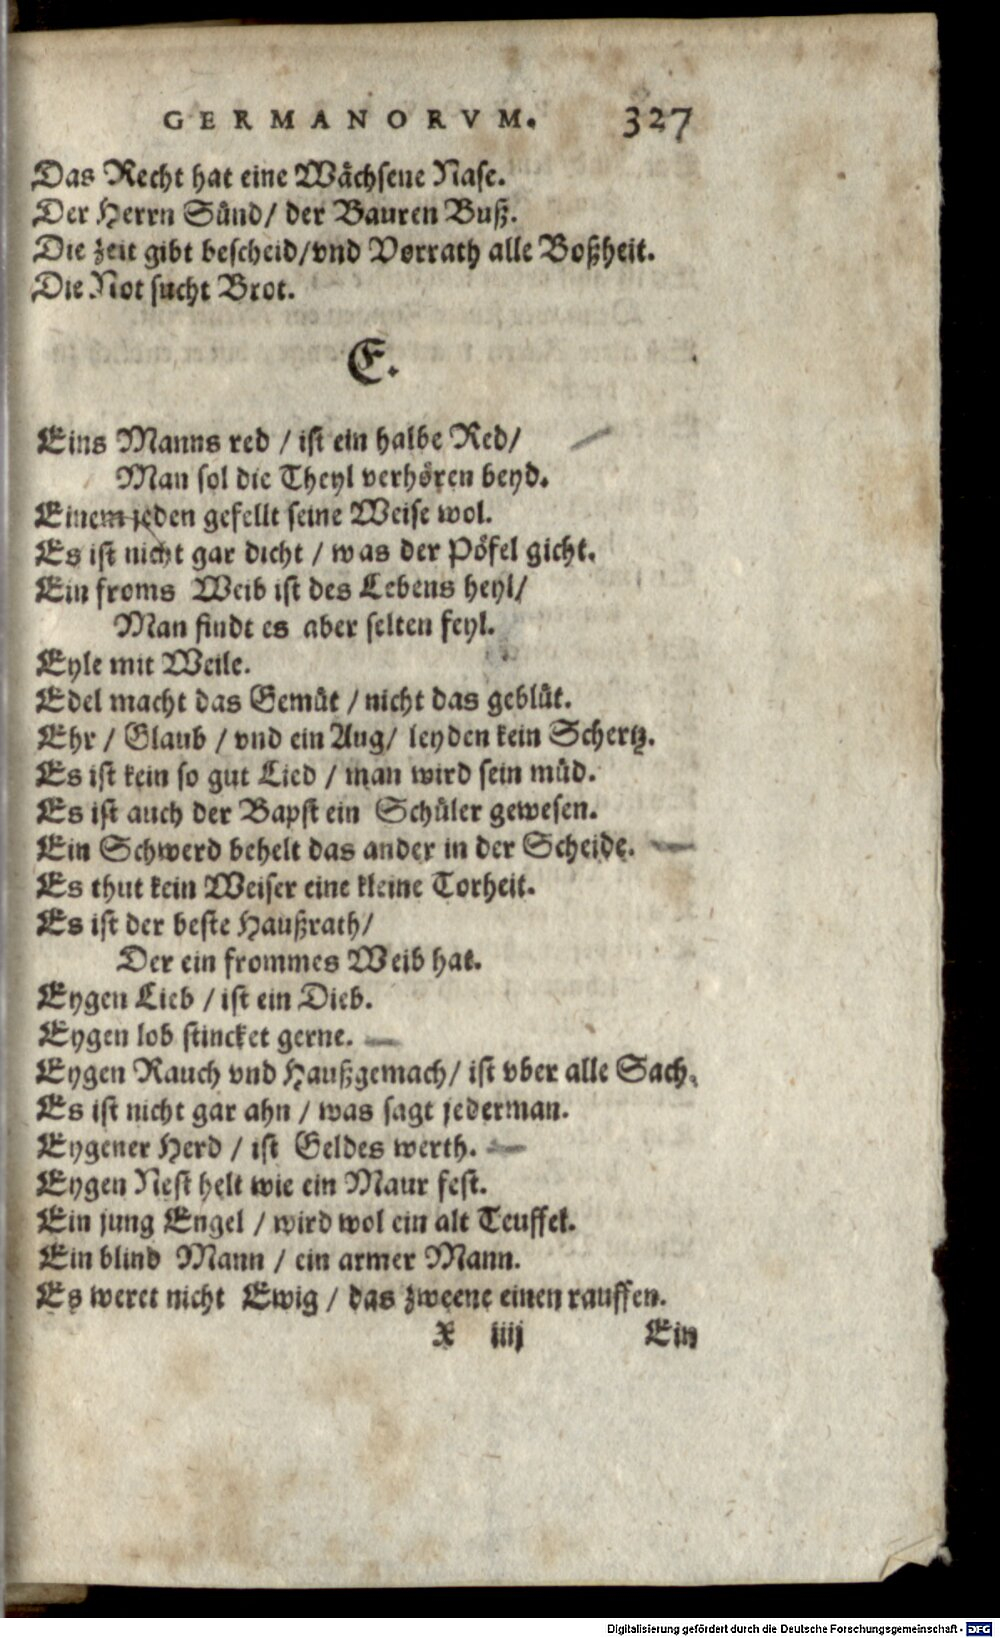 GERMANORVM. 327
Das Recht hat eine Wächsene Nase.
Der Herrn Sünd/ der Bauren Buß.
Die zeit gibt bescheid/vnd Vorrath alle Boßheit.
Die Not sucht Brot.
E.
Eins Manns red / ist ein halbe Red/
Man sol die Theyl verhören beyd.
Einem jeden gefellt seine Weise wol.
Es ist nicht gar dicht / was der Pöfel gicht.
Ein froms Weib ist des Lebens heyl/
Man findt es aber selten feyl.
Eyle mit Weile.
Edel macht das Gemüt / nicht das geblüt.
Ehr / Glaub / vnd ein Aug/ leyden kein Schertz.
Es ist kein so gut Lied / man wird sein müd.
Es ist auch der Bapst ein Schüler gewesen.
Ein Schwerd behelt das ander in der Scheide.
Es thut kein Weiser eine kleine Torheit.
Es ist der beste Haußrath/
Der ein frommes Weib hat.
Eygen Lieb / ist ein Dieb.
Eygen lob stincket gerne.
Eygen Rauch vnd Haußgemach/ ist vber alle Sach.
Es ist nicht gar ahn / was sagt jederman.
Eygener Herd / ist Geldes werth.
Eygen Nest helt wie ein Maur fest.
Ein jung Engel / wird wol ein alt Teuffel.
Ein blind Mann / ein armer Mann.
Es weret nicht Ewig / das zweene einen rauffen.
X iiij Ein
Digitalisierung gefördert durch die Deutsche Forschungsgemeinschaft - DFG